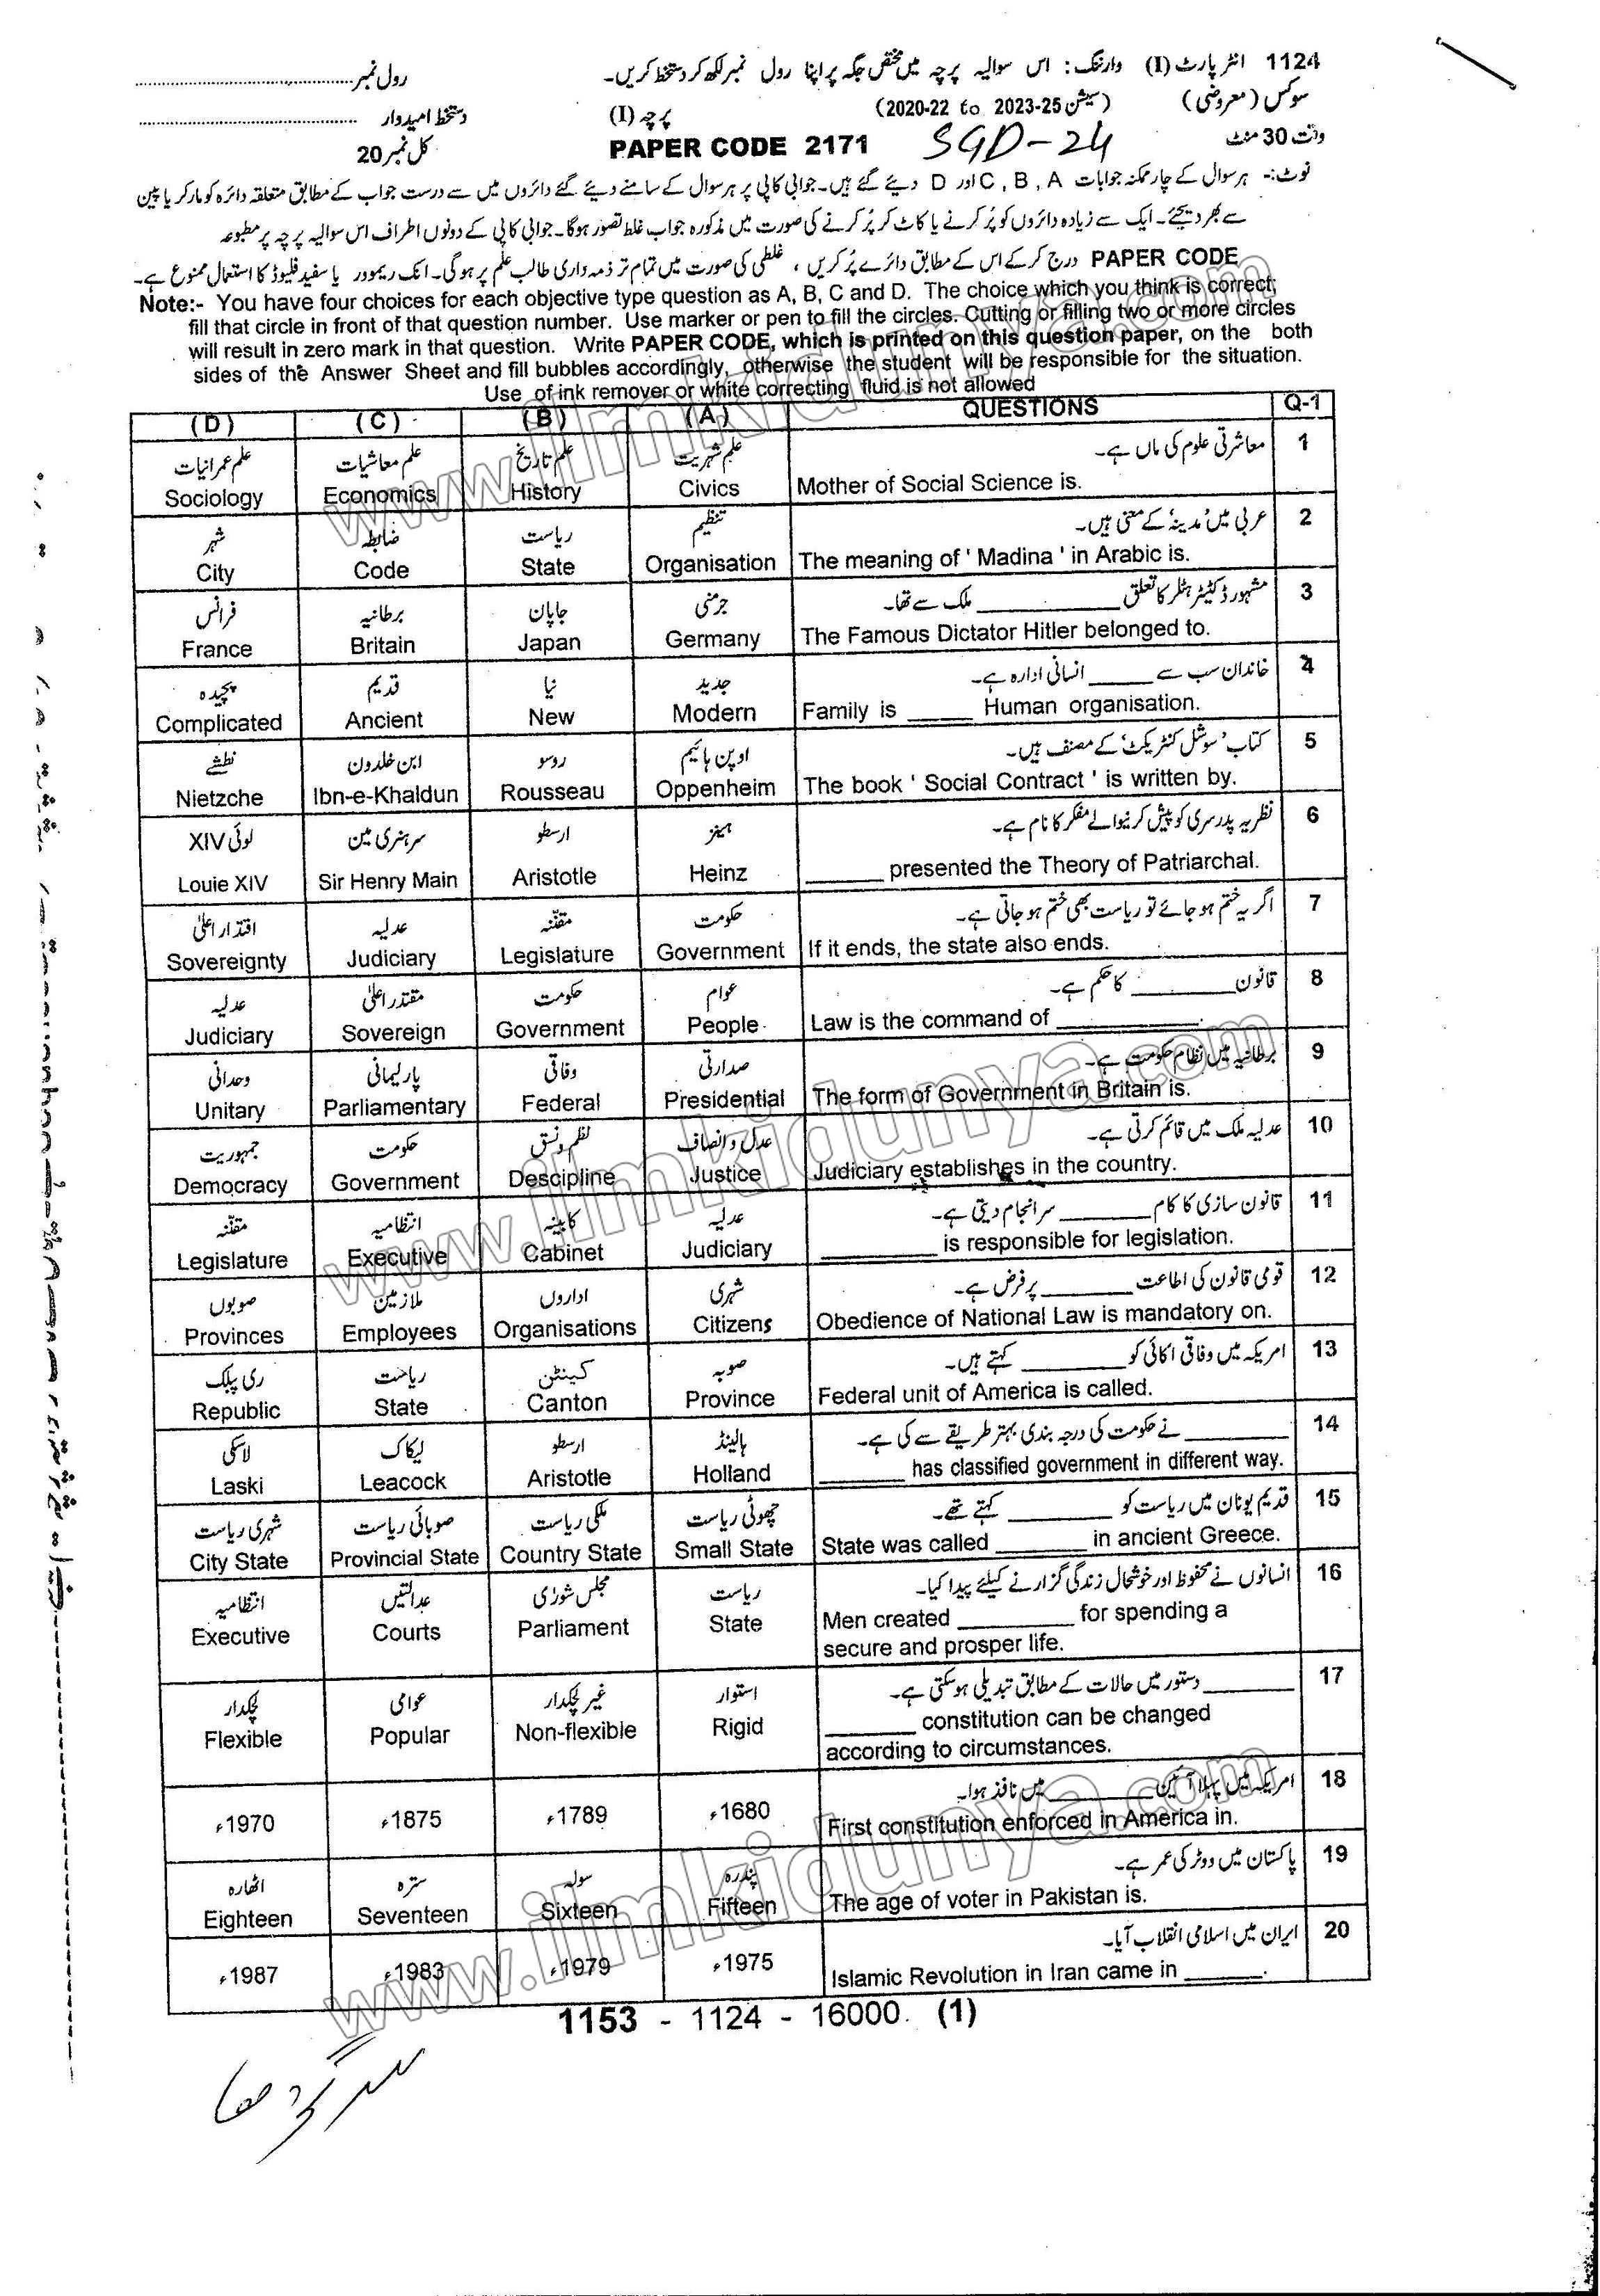 1124 انٹر پارٹ (I) وارننگ: اس سوالیہ پرچہ میں مختص جگہ پر اپنا رول نمبر لکھ کر دستخط کریں۔ رول نمبر
سوکس (معروضی) (سیشن 2020-22 to 2023-25) پرچہ (I) دستخط امیدوار
وقت 30 منٹ SGD-24 PAPER CODE 2171 کل نمبر 20
نوٹ:- ہر سوال کے چار ممکنہ جوابات A , B , C اور D دیئے گئے ہیں۔ جوابی کاپی پر ہر سوال کے سامنے دیئے گئے دائروں میں سے درست جواب کے مطابق متعلقہ دائرہ کو مارکر یا پین
سے بھر دیجئے۔ ایک سے زیادہ دائروں کو پُر کرنے یا کاٹ کر پُر کرنے کی صورت میں مذکورہ جواب غلط تصور ہوگا۔ جوابی کاپی کے دونوں اطراف اس سوالیہ پرچہ پر مطبوعہ
PAPER CODE درج کر کے اس کے مطابق دائرے پُر کریں ، غلطی کی صورت میں تمام تر ذمہ داری طالب علم پر ہوگی۔ انک ریموور یا سفید فلیوڈ کا استعمال ممنوع ہے۔
Note:- You have four choices for each objective type question as A, B, C and D. The choice which you think is correct;
fill that circle in front of that question number. Use marker or pen to fill the circles. Cutting or filling two or more circles
will result in zero mark in that question. Write PAPER CODE, which is printed on this question paper, on the both
sides of the Answer Sheet and fill bubbles accordingly, otherwise the student will be responsible for the situation.
Use of ink remover or white correcting fluid is not allowed
(D) (C) (B) (A) QUESTIONS Q-1
علم عمرانیات علم معاشیات علم تاریخ علم شہریت معاشرتی علوم کی ماں ہے۔ 1
Sociology Economics History Civics Mother of Social Science is.
شہر ضابطہ ریاست تنظیم عربی میں 'مدینہ' کے معنی ہیں۔ 2
City Code State Organisation The meaning of ' Madina ' in Arabic is.
فرانس برطانیہ جاپان جرمنی مشہور ڈکٹیٹر ہٹلر کا تعلق ________ ملک سے تھا۔ 3
France Britain Japan Germany The Famous Dictator Hitler belonged to.
پیچیدہ قدیم نیا جدید خاندان سب سے ____ انسانی ادارہ ہے۔ 4
Complicated Ancient New Modern Family is _____ Human organisation.
نطشے ابن خلدون روسو اوپن ہائیم کتاب 'سوشل کنٹریکٹ' کے مصنف ہیں۔ 5
Nietzche Ibn-e-Khaldun Rousseau Oppenheim The book ' Social Contract ' is written by.
لوئی XIV سر ہنری مین ارسطو ہینز نظریہ پدرسری کو پیش کرنیوالے مفکر کا نام ہے۔ 6
Louie XIV Sir Henry Main Aristotle Heinz ______ presented the Theory of Patriarchal.
اقتدار اعلیٰ عدلیہ مقنّنہ حکومت اگر یہ ختم ہو جائے تو ریاست بھی ختم ہو جاتی ہے۔ 7
Sovereignty Judiciary Legislature Government If it ends, the state also ends.
عدلیہ مقتدر اعلیٰ حکومت عوام قانون ________ کا حکم ہے۔ 8
Judiciary Sovereign Government People Law is the command of __________.
وحدانی پارلیمانی وفاقی صدارتی برطانیہ میں نظام حکومت ہے۔ 9
Unitary Parliamentary Federal Presidential The form of Government in Britain is.
جمہوریت حکومت نظم و نسق عدل و انصاف عدلیہ ملک میں قائم کرتی ہے۔ 10
Democracy Government Descipline Justice Judiciary establishes in the country.
مقنّنہ انتظامیہ کابینہ عدلیہ قانون سازی کا کام ______ سرانجام دیتی ہے۔ 11
Legislature Executive Cabinet Judiciary ________ is responsible for legislation.
صوبوں ملازمین اداروں شہری قومی قانون کی اطاعت ______ پر فرض ہے۔ 12
Provinces Employees Organisations Citizens Obedience of National Law is mandatory on.
ری پبلک ریاست کینٹن صوبہ امریکہ میں وفاقی اکائی کو ______ کہتے ہیں۔ 13
Republic State Canton Province Federal unit of America is called.
لاسکی لیکاک ارسطو ہالینڈ ______ نے حکومت کی درجہ بندی بہتر طریقے سے کی ہے۔ 14
Laski Leacock Aristotle Holland ______ has classified government in different way.
شہری ریاست صوبائی ریاست ملکی ریاست چھوٹی ریاست قدیم یونان میں ریاست کو ______ کہتے تھے۔ 15
City State Provincial State Country State Small State State was called ______ in ancient Greece.
انتظامیہ عدالتیں مجلس شوریٰ ریاست انسانوں نے محفوظ اور خوشحال زندگی گزارنے کیلئے پیدا کیا۔ 16
Executive Courts Parliament State Men created ________ for spending a
secure and prosper life.
لچکدار عوامی غیر لچکدار استوار ______ دستور میں حالات کے مطابق تبدیلی ہوسکتی ہے۔ 17
Flexible Popular Non-flexible Rigid ______ constitution can be changed
according to circumstances.
امریکہ میں پہلا آئین ______ میں نافذ ہوا۔ 18
1970ء 1875ء 1789ء 1680ء First constitution enforced in America in.
اٹھارہ سترہ سولہ پندرہ پاکستان میں ووٹر کی عمر ہے۔ 19
Eighteen Seventeen Sixteen Fifteen The age of voter in Pakistan is.
ایران میں اسلامی انقلاب آیا۔ 20
1987ء 1983ء 1979ء 1975ء Islamic Revolution in Iran came in ______.
1153 - 1124 - 16000. (1)
سرگودھا
www.ilmkidunya.com
www.ilmkidunya.com
www.ilmkidunya.com